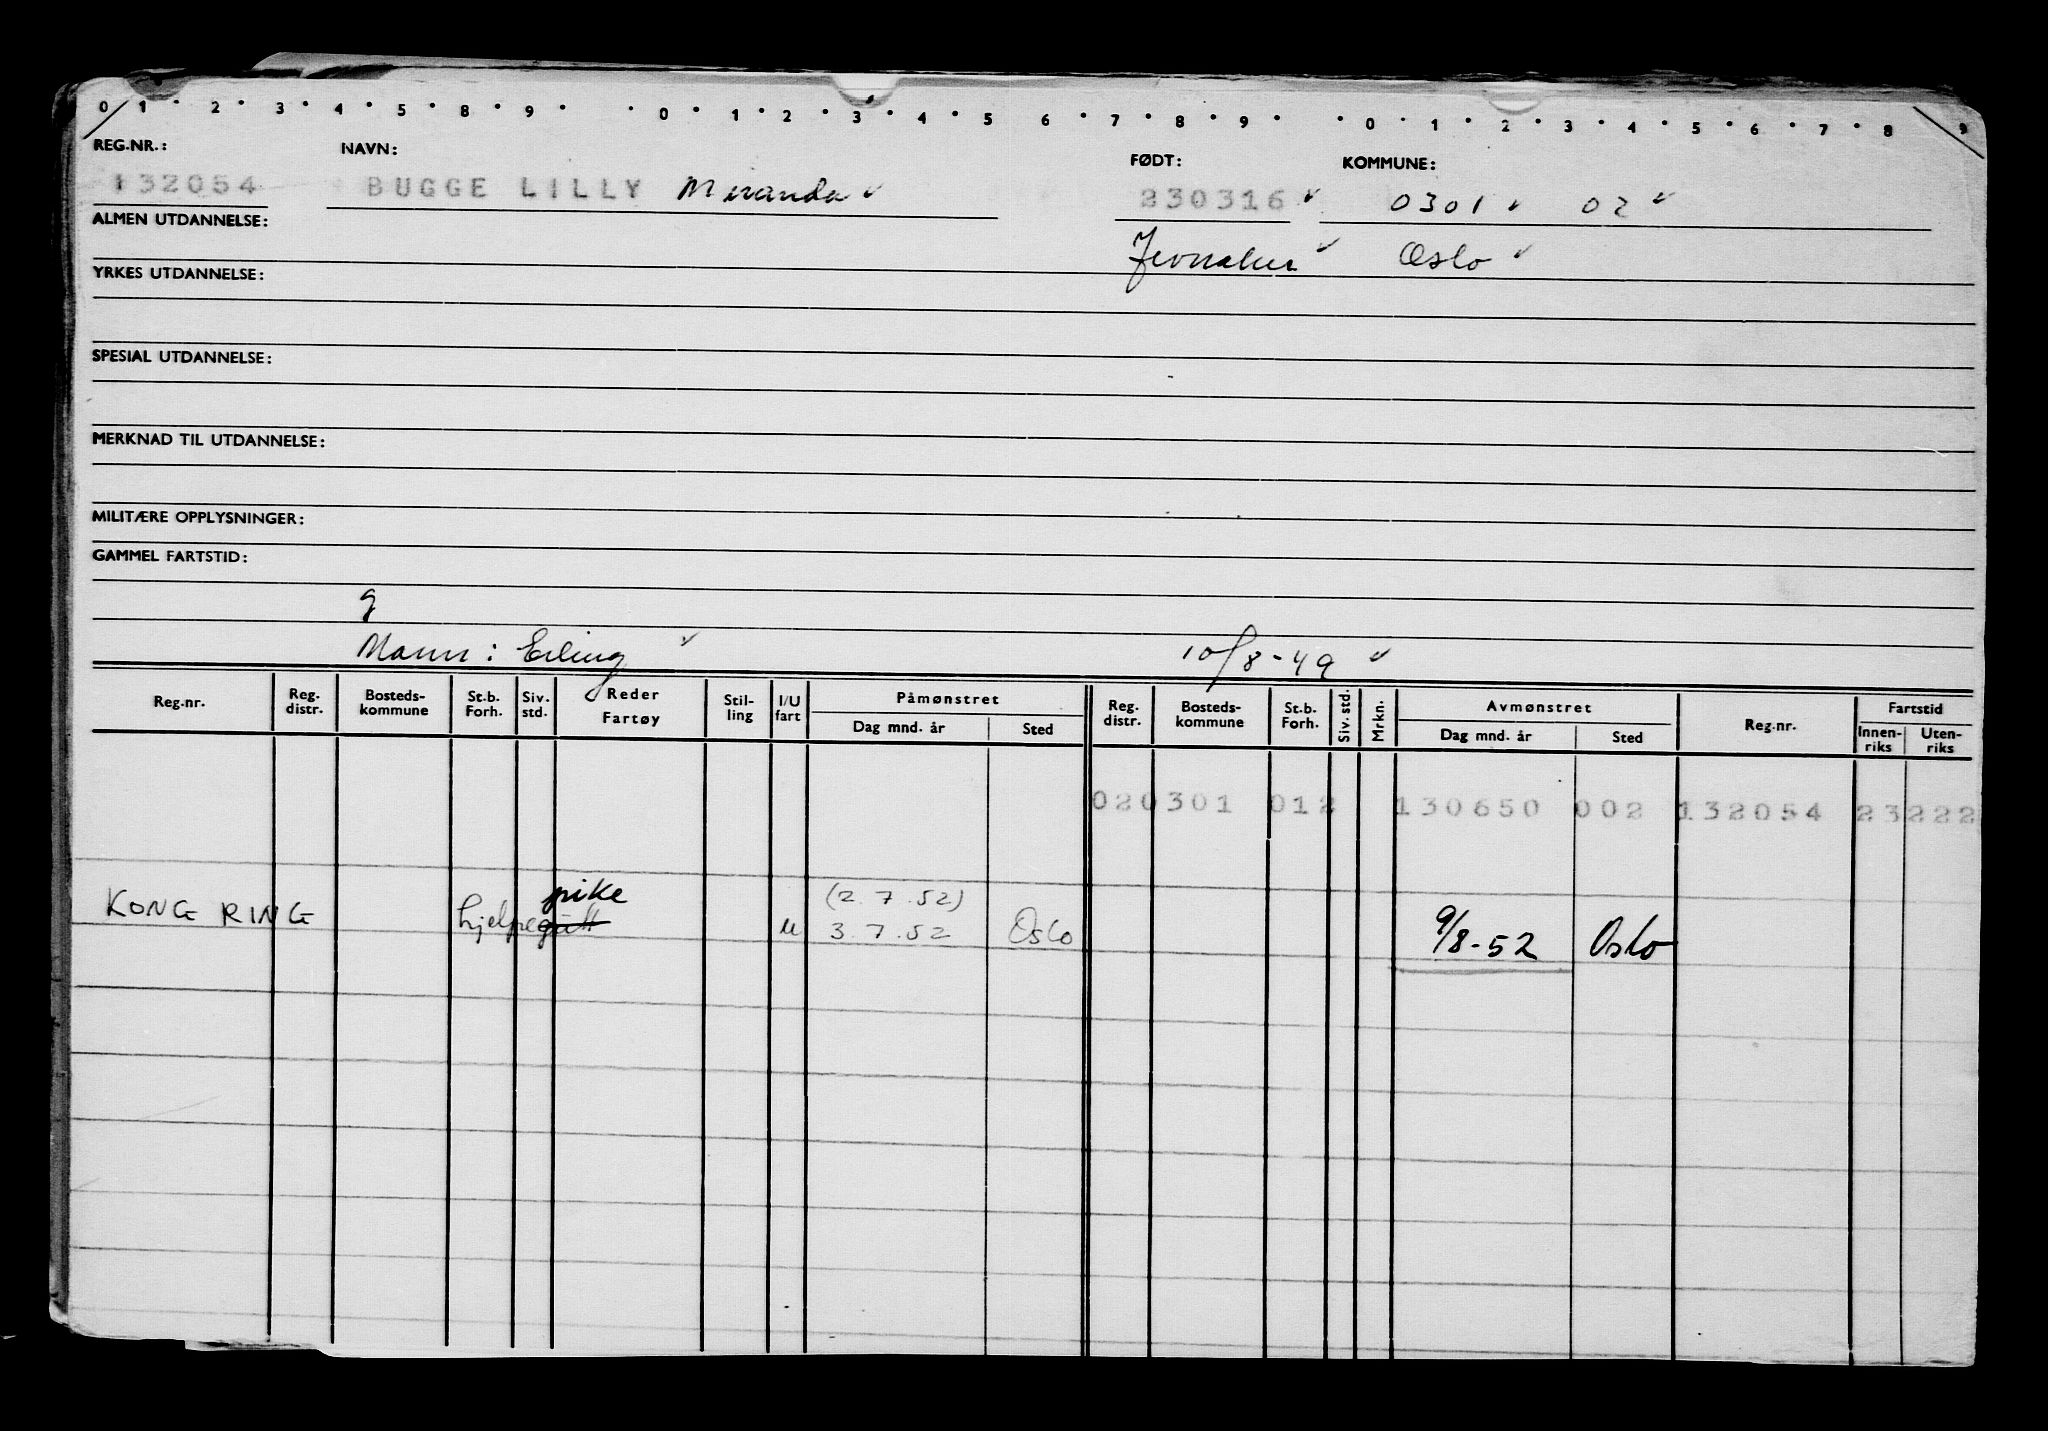 0 1 2 3 4 5 8 9 0 1 2 3 4 5 6 7 8 9 0 1 2 3 4 5 6 7 8 9
REG.NR.: NAVN: FØDT: KOMMUNE:
132054 BUGGE LILLY Miranda 230316 0301 02
ALMEN UTDANNELSE:
Jevnaker Oslo
YRKES UTDANNELSE:
SPESIAL UTDANNELSE:
MERKNAD TIL UTDANNELSE:
MILITÆRE OPPLYSNINGER:
GAMMEL FARTSTID:
g
Mann: Erling 10/8-49
Reg.nr. Reg. distr. Bosteds- kommune St.b. Forh. Siv. std. Reder Fartøy Stil- ling I/U fart Påmønstret Dag mnd. år Sted Reg. distr. Bosteds- kommune St.b. Forh. Siv. std. Mrkn. Avmønstret Dag mnd. år Sted Reg.nr. Fartstid Innen- riks Uten- riks
020301 012 130650 002 132054 23222
pike (2.7.52)
KONG RING hjelpegutt u 3.7.52 Oslo 9/8-52 Oslo